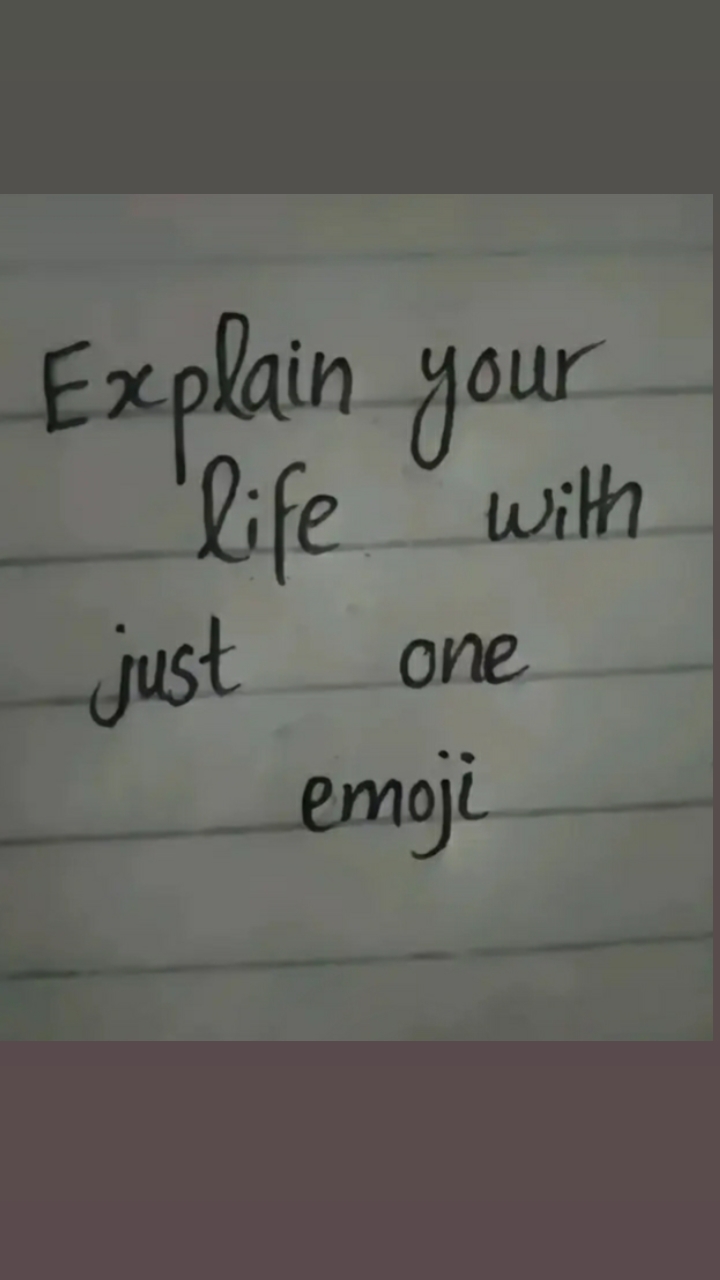 Explain your
life with
just one
emoji